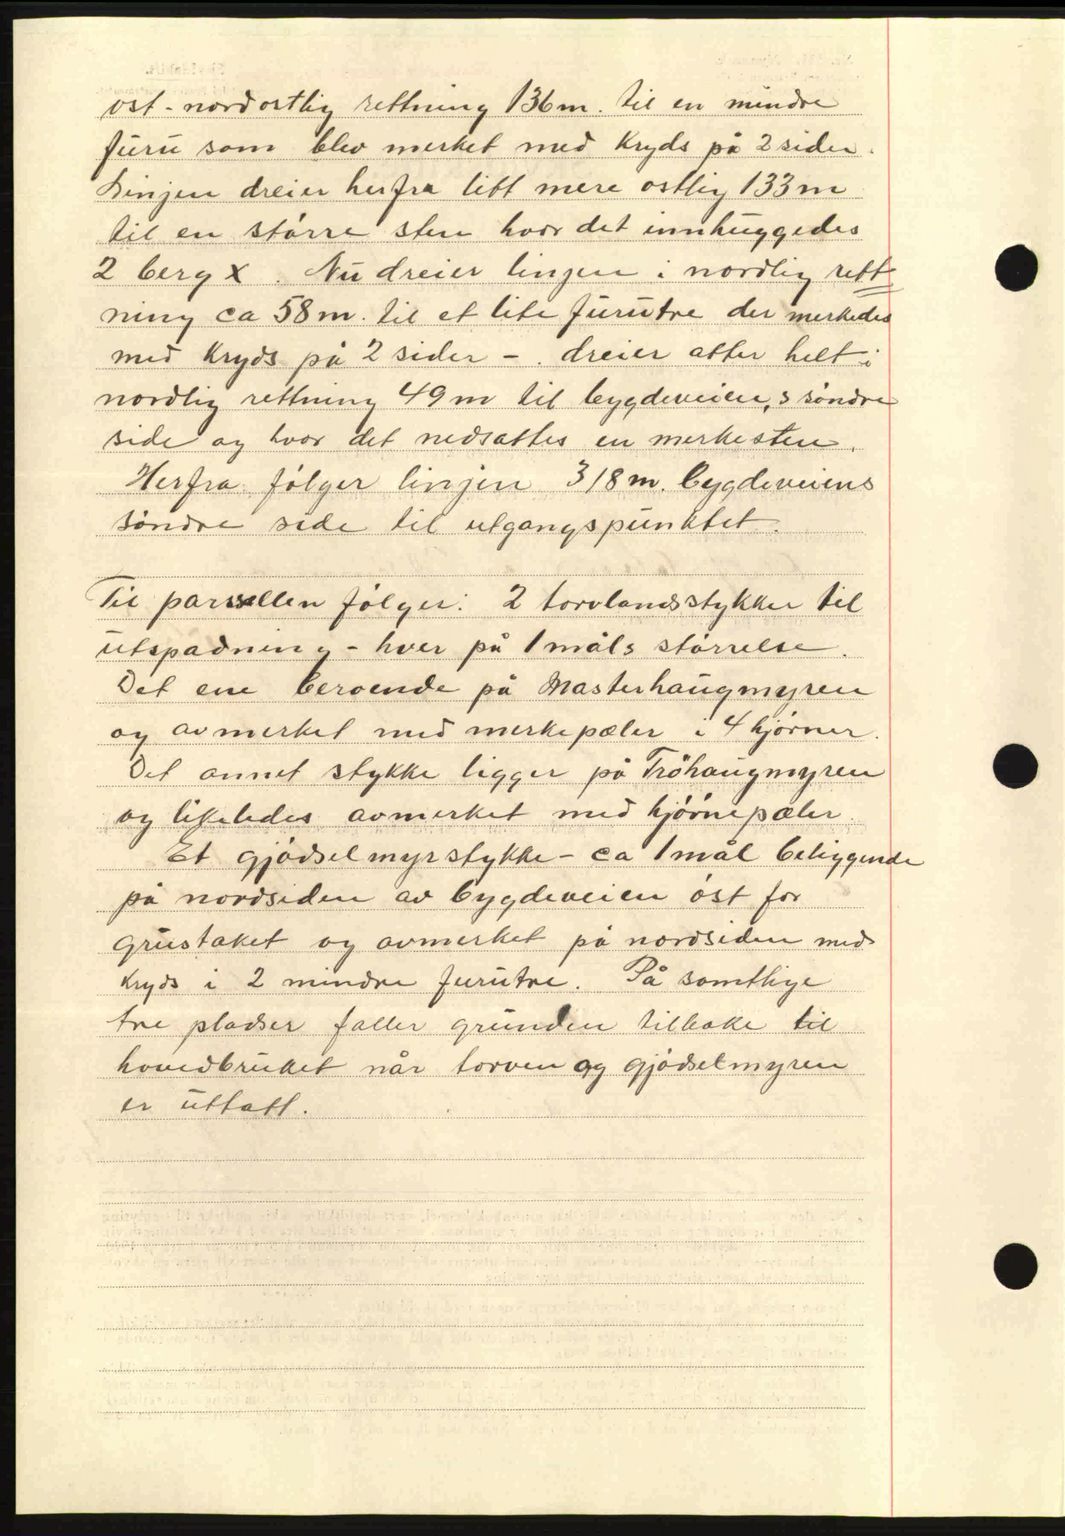 ost-nordostlig rettning 136 m. til en mindre
furu som blev merket med Kryds på 2 sider.
Linjen dreier herfra litt mere ostlig 133 m
til en større sten hvor det innhuggedes
2 berg x. Nu dreier linjen i nordlig rett
ning ca 58 m. til et lite furutre der merkedes
med Kryds på 2 sider -. dreier atter helt i
nordlig rettning 49 m til bygdeveien,s søndre
side og hvor det nedsattes en merkesten.
Herfra følger linjen 318 m. bygdeveiens
søndre side til utgangspunktet.
Til parsellen følger: 2 torvlandsstykker til
utspadning - hver på 1 måls størrelse.
Det ene beroende på Masterhaugmyren
og avmerket med merkepæler i 4 hjørner.
Det annet stykke ligger på Tröhaugmyren
og likeledes avmerket med hjørnepæler
Et gjødselmyrstykke - ca 1 mål beliggende
på nordsiden av bygdeveien øst for
grustaket og avmerket på nordsiden med
Kryds i 2 mindre furutre. På samtlige
tre pladser faller grunden tilbake til
hovedbruket når torven og gjødselmyren
er uttatt.